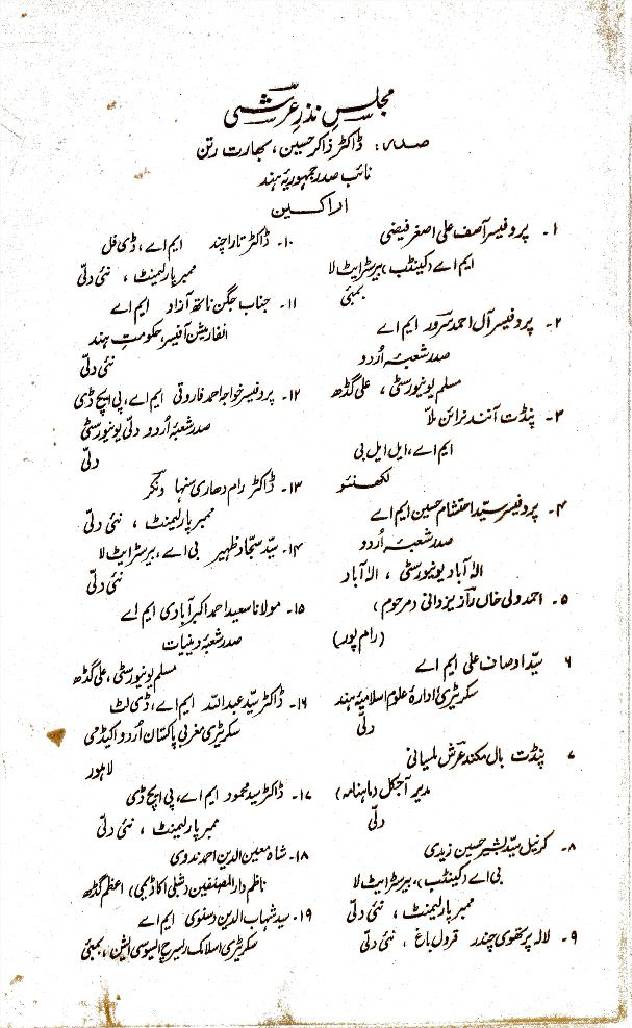 مجلسِ نذرِ عرشی
صدر: ڈاکٹر ذاکر حسین، بھارت رتن
نائب صدر جمہوریۂ ہند
اراکین
۱۔ پروفیسر آصف علی اصغر فیضی
ایم اے (کینٹب) بیرسٹر ایٹ لا
بمبئی
۲۔ پروفیسر آل احمد سرور ایم اے
صدر شعبۂ اُردو
مسلم یونیورسٹی، علی گڈھ
۳۔ پنڈت آنند نرائن ملّا
ایم اے، ایل ایل بی
لکھنئو
۴۔ پروفیسر سیّد احتشام حسین ایم اے
صدر شعبۂ اُردو
الٰہ آباد یونیورسٹی، الٰہ آباد
۵۔ احمد ولی خاں رازؔ یزدانی (مرحوم)
(رام پور)
۶ سیّد اوصاف علی ایم اے
سکریٹری ادارۂ علوم اسلامیہ ہند
دلّی
۷ پنڈت بال مکند عرشؔ ملسیانی
مدیر آجکل (ماہنامہ)
دلّی
۸۔ کرنیل سیّد بشیر حسین زیدی
بی اے (کینٹب)، بیرسٹر ایٹ لا
ممبر پارلیمنٹ، نئی دلّی
۹۔ لالہ پرتھوی چندر قرول باغ، نئی دلّی
۱۰۔ ڈاکٹر تارا چند ایم اے، ڈی فل
ممبر پارلیمنٹ، نئی دلّی
۱۱۔ جناب جگن ناتھ آزاد ایم اے
انفارمیشن آفیسر، حکومتِ ہند
نئی دلّی
۱۲۔ پروفیسر خواجہ احمد فاروقی ایم اے، پی ایچ ڈی
صدر شعبۂ اُردو دلّی یونیورسٹی
دلّی
۱۳۔ ڈاکٹر رام دھاری سنہا دنکرؔ
ممبر پارلیمنٹ، نئی دلّی
۱۴۔ سیّد سجّاد ظہیر بی اے، بیرسٹر ایٹ لا
نئی دلّی
۱۵۔ مولانا سعید احمد اکبر آبادی ایم اے
صدر شعبۂ دینیات
مسلم یونیورسٹی، علی گڈھ
۱۶۔ ڈاکٹر سیّد عبد اللہ ایم اے، ڈی لٹ
سکریٹری مغربی پاکستان اُردو اکیڈمی
لاہور
۱۷۔ ڈاکٹر سید محمود ایم اے، پی ایچ ڈی
ممبر پارلیمنٹ، نئی دلّی
۱۸۔ شاہ معین الدین احمد ندوی
ناظم دار المصنفین (شبلی اکاڈیمی) اعظم گڈھ
۱۹۔ سید شہاب الدین دسنوی ایم اے
سکریٹری اسلامک ریسرچ ایسوسی ایشن، بمبئی